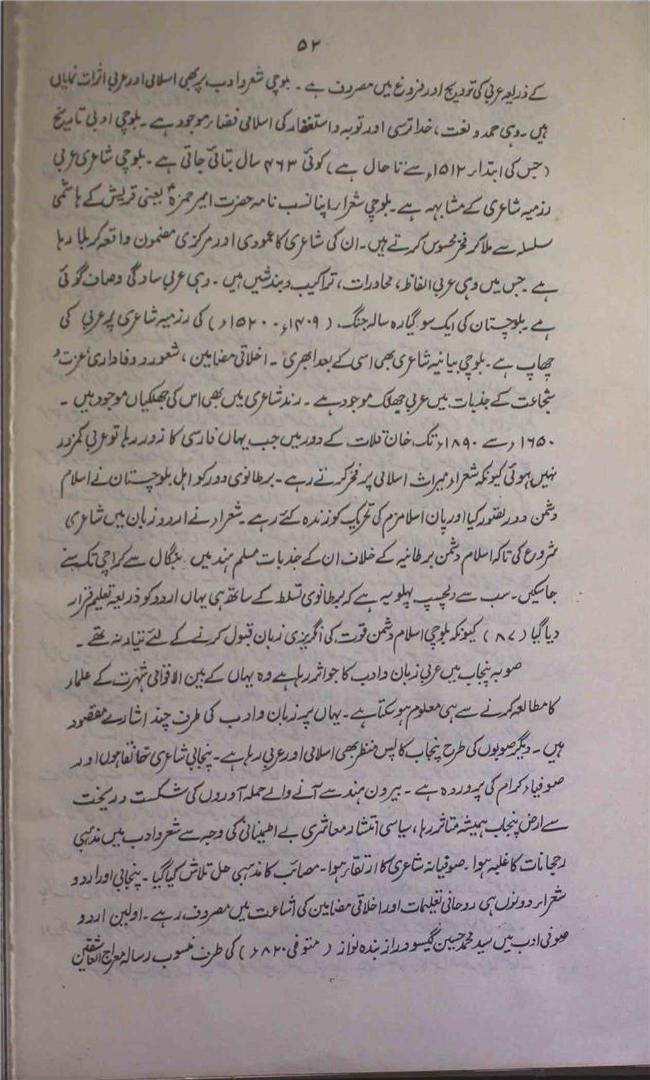 ۵۲
کے ذریعہ عربی کی ترویج اور فروغ میں مصروف ہے ۔ بلوچی شعر و ادب پر بھی اسلامی اور عربی اثرات نمایاں
ہیں ۔ وہی حمد و نعت ، خدا ترسی اور توبہ و استغفار کی اسلامی فضار موجود ہے ۔ بلوچی ادبی تاریخ
(جس کی ابتدار ۱۵۱۲ء سے تا حال ہے) کوئی ۴۶۳ سال بتائی جاتی ہے ۔ بلوچی شاعری عربی
رزمیہ شاعری کے مشابہہ ہے ۔ بلوچی شعرار اپنا نسب نامہ حضرت امیر حمزہؓ یعنی قریش کے ہاشمی
سلسلہ سے ملا کر فخر محسوس کرتے ہیں ۔ ان کی شاعری کا عمودی اور مرکزی مضمون واقعہ کربلا رہا
ہے جس میں وہی عربی الفاظ ، محاورات ، تراکیب و بندشیں ہیں ۔ وہی عربی سادگی و صاف گوئی
ہے ۔ بلوچستان کی ایک سو گیارہ سالہ جنگ ، (۱۴۰۹ء - ۱۵۲۰ء) کی رزمیہ شاعری پر عربی کی
چھاپ ہے ۔ بلوچی بیانیہ شاعری بھی اسی کے بعد ابھری ۔ اخلاقی مضامین ، شعور و وفاداری عزت و
شجاعت کے جذبات میں عربی جھلک موجود ہے ۔ رند شاعری میں بھی اس کی جھلکیاں موجود ہیں ۔
۱۶۵۰ء سے ۱۸۹۰ء تک خان قلات کے دور میں جب یہاں فارسی کا زور رہا تو عربی کمزور
نہیں ہوئی کیونکہ شعرار میراث اسلامی پر فخر کرتے رہے ۔ برطانوی دور کو اہل بلوچستان نے اسلام
دشمن دور تصور کیا اور پان اسلامزم کی تحریک کو زندہ کئے رہے ۔ شعرار نے اردو زبان میں شاعری
شروع کی تاکہ اسلام دشمن برطانیہ کے خلاف ان کے جذبات مسلم ہند میں بنگال سے کراچی تک سنے
جا سکیں ۔ سب سے دلچسپ پہلو یہ ہے کہ برطانوی تسلط کے ساتھ ہی یہاں اردو کو ذریعہ تعلیم قرار
دیا گیا (۸۷) کیونکہ بلوچی اسلام دشمن قوت کی انگریزی زبان قبول کرنے کے لئے تیار نہ تھے ۔
صوبہ پنجاب میں عربی زبان و ادب کا جو اثر رہا ہے وہ یہاں کے بین الاقوامی شہرت کے علمار
کا مطالعہ کرنے سے ہی معلوم ہو سکتا ہے ۔ یہاں پر زبان و ادب کی طرف چند اشارے مقصود
ہیں ۔ دیگر صوبوں کی طرح پنجاب کا پس منظر بھی اسلامی اور عربی رہا ہے ۔ پنجابی شاعری خانقاہوں اور
صوفیاء کرام کی پروردہ ہے ۔ بیرون ہند سے آنے والے حملہ آوروں کی شکست و ریخت
سے ارض پنجاب ہمیشہ متاثر رہا ، سیاسی انتشار معاشری بے اطمینانی کی وجہ سے شعر و ادب میں مذہبی
رجحانات کا غلبہ ہوا ۔ صوفیانہ شاعری کا ارتقار ہوا ۔ مصائب کا مذہبی حل تلاش کیا گیا ۔ پنجابی اور اردو
شعرار دونوں ہی روحانی تعلیمات اور اخلاقی مضامین کی اشاعت میں مصروف رہے ۔ اولین اردو
صوفی ادب میں سید محمد حسین گیسو دراز بندہ نواز (متوفی ۸۲۰ء) کی طرف منسوب رسالہ معراج العاشقین